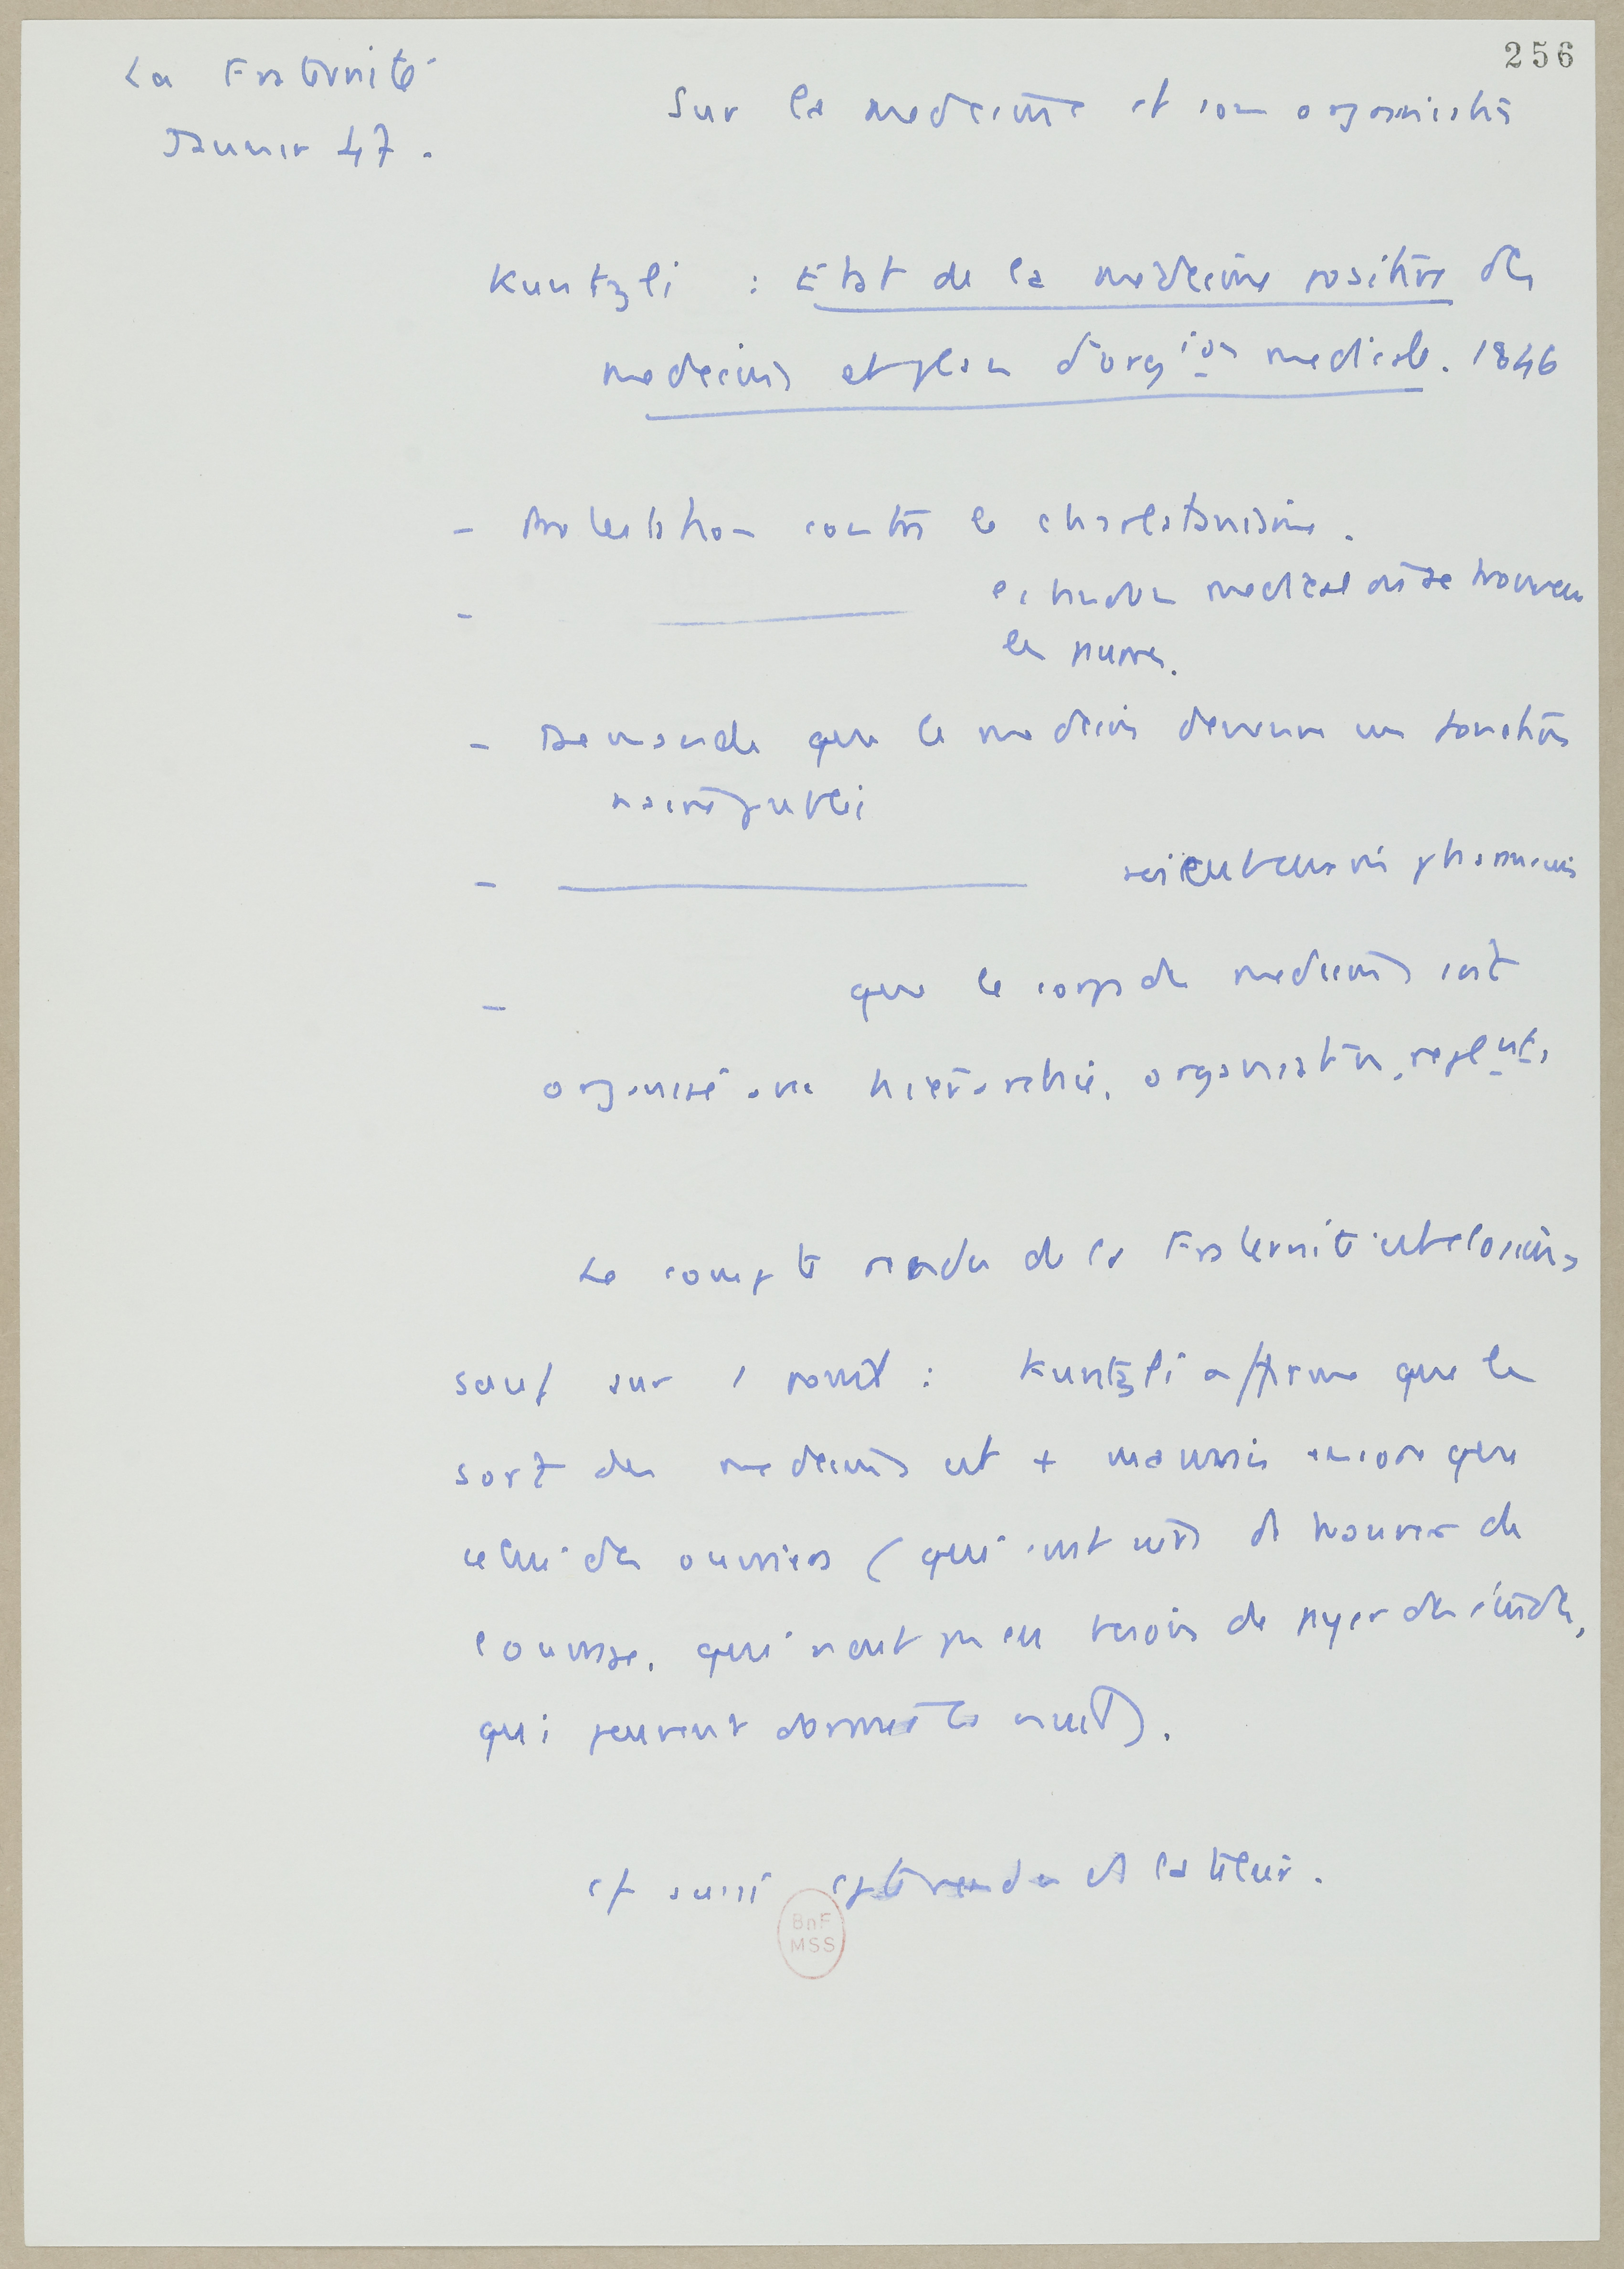 256
La Fraternité
Janvier 47.
Sur la médecine et son organisation
Kuntzli : Etat de la médecine position des
médecins et plan d'org ion médicale. 1846
- Protestation contre le charlatanisme.
- médical où se trouvent
les pauvres.
- Demande que le médecin devienne un fonction
naire public
- pharmaciens
- que le corps des médecins soit
organisé avec hiérarchie, organisation, reglnts.
Le compte rendu de la Fraternité est élogieux
sauf sur 1 point : Kuntzli affirme que le
sort des médecins est + mauvais encore que
celui des ouvriers (qui sont sûrs de trouver de
l'ouvrage, qui n'ont pas eu besoin de payer des études,
qui peuvent dormir la nuit).
cf aussi
BnF
MSS